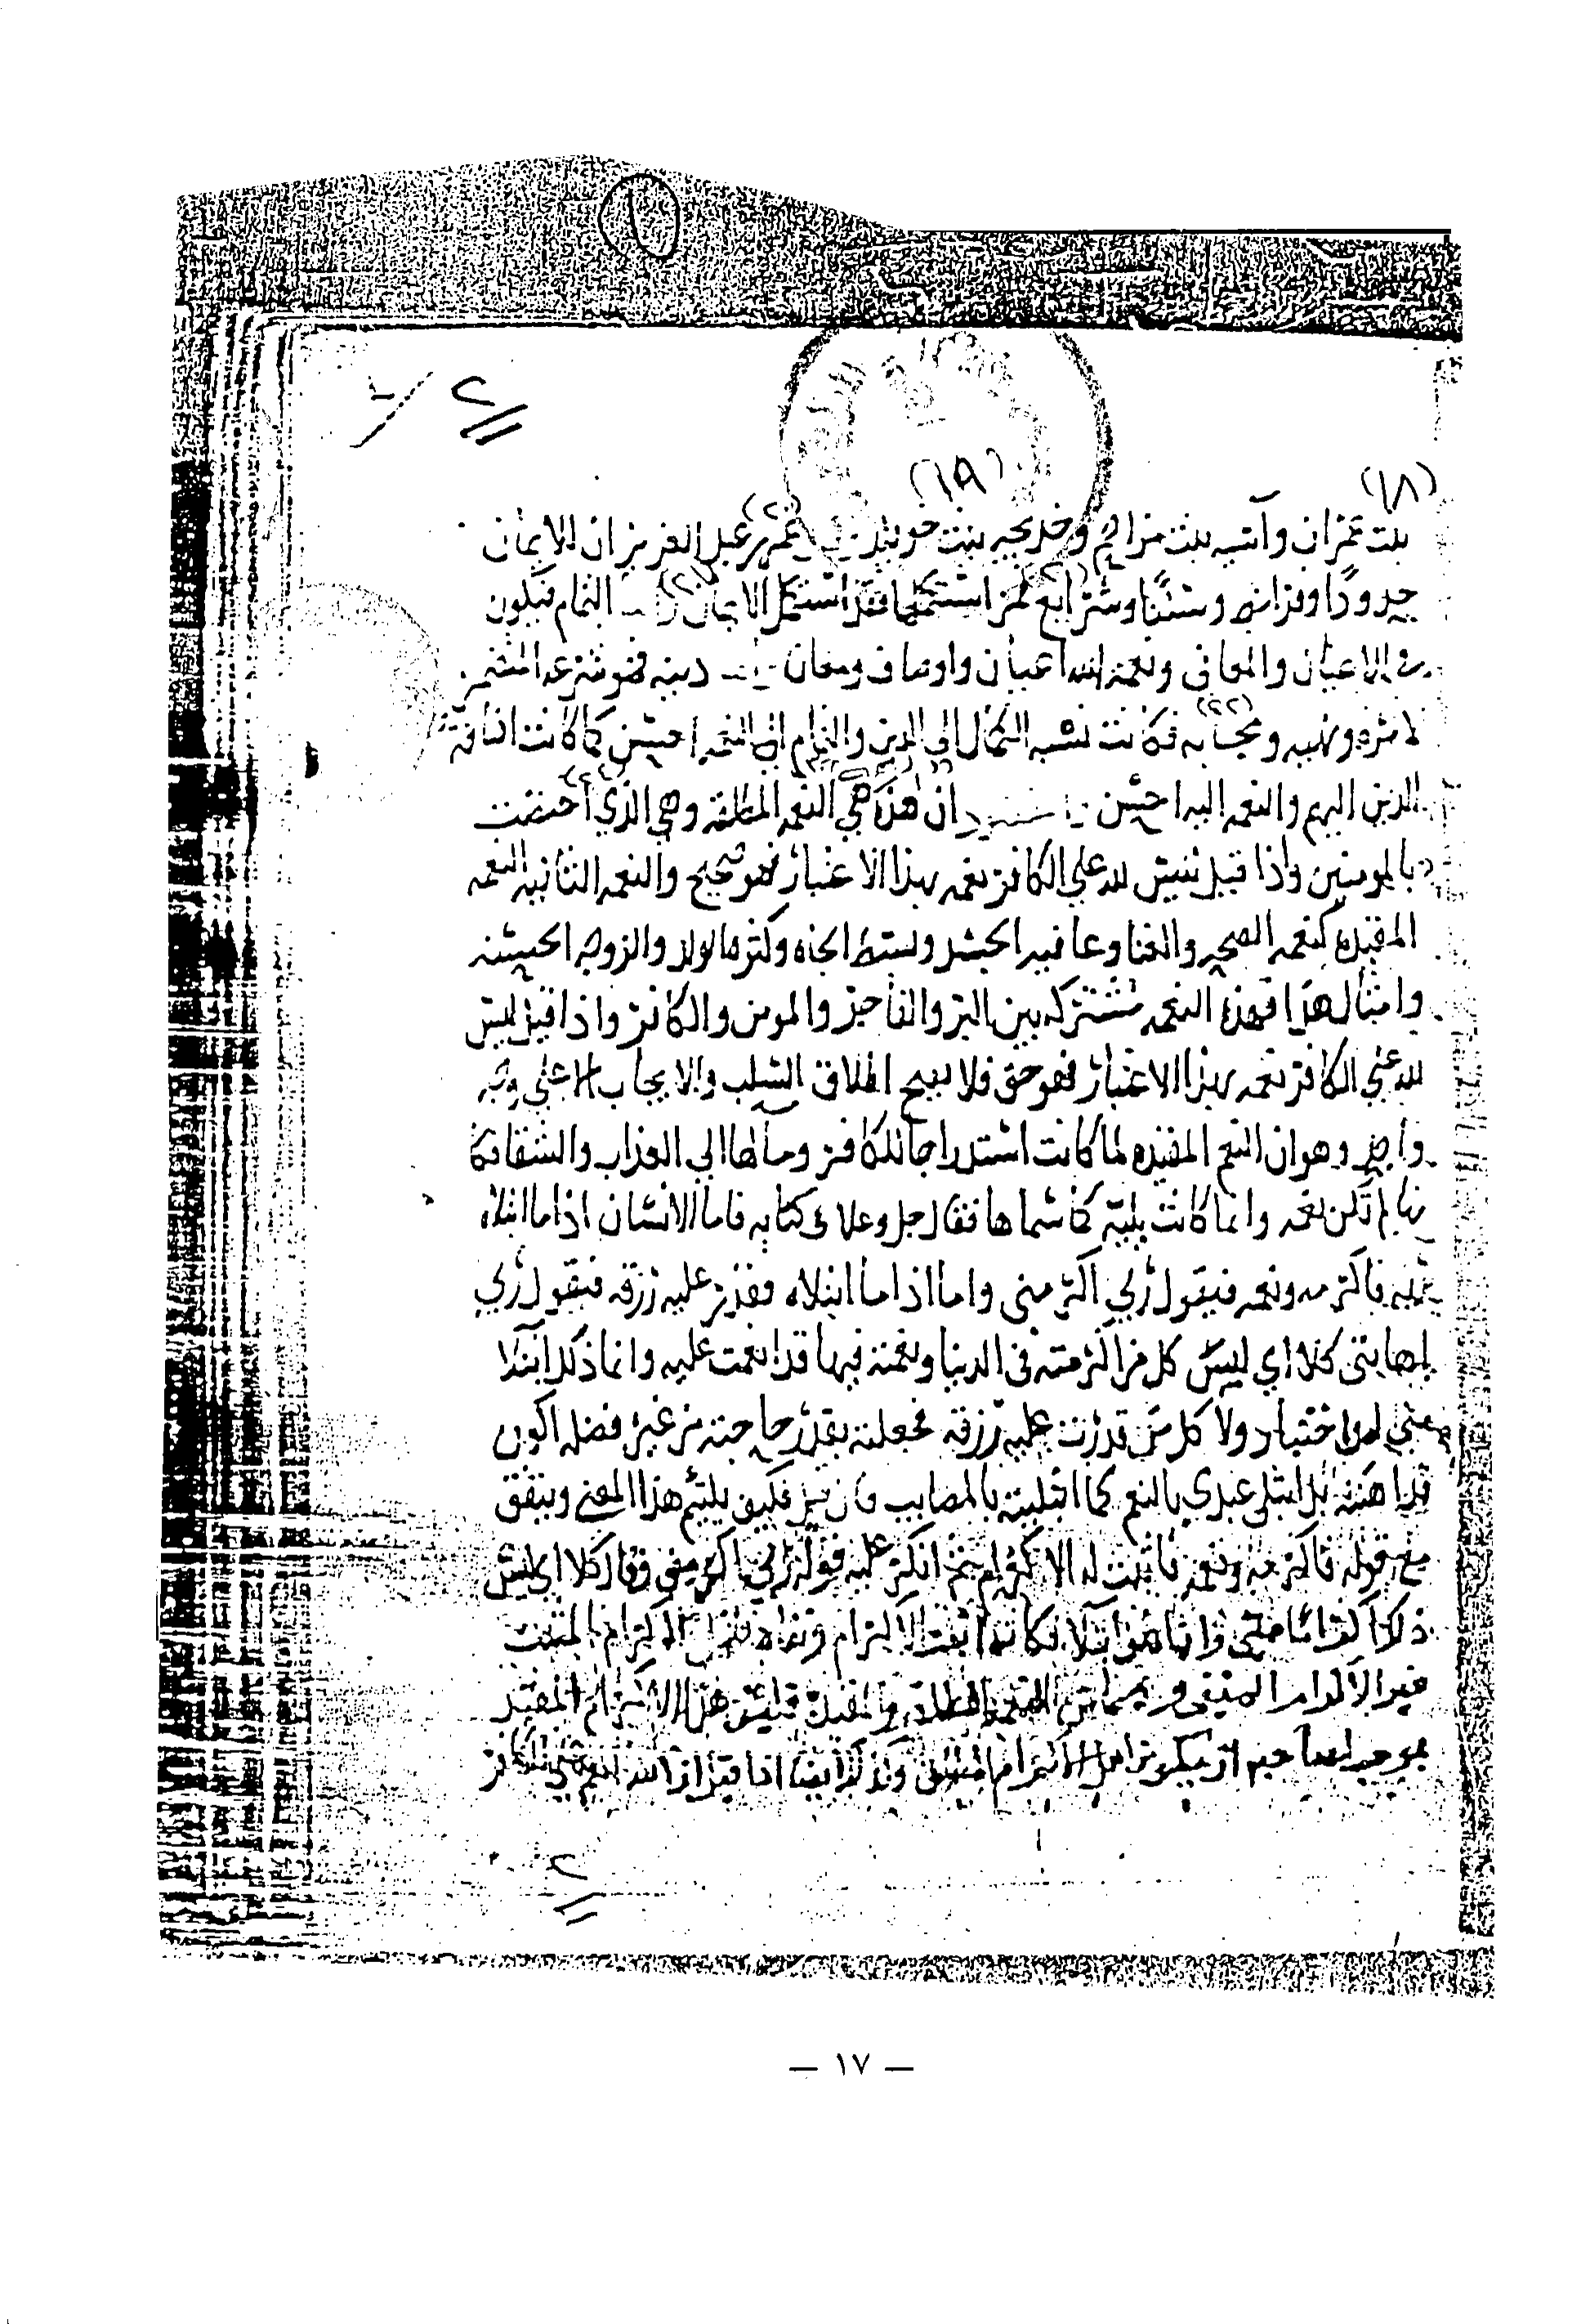 (١٨)
(١٩)
بنت عمران وآسيه بنت مزاحم وخديجه بنت خويلد عمر بن عبد العزيز ان الايمان
حدودًا وفرايض وسننًا وشرايع فمن استكملها فقد استكمل الايمان التمام فيكون
في الاعيان والمعاني ونعمه الله اعيان واوصاف ومعان دينه فهو شرعه المتضمن
لامره ونهيه ومحابه فكانت نسبه الكمال الي الدين والتمام الي النعمه احسن كما كانت اضافة
الدين اليهم والنعمه اليه احسن ان هذه هي النعمه المطلقه وهي الذي اختصت
بالمومنين واذا قيل ليس لله علي الكافر نعمه بهذا الاعتبار فهو صحيح والنعمه الثانيه النعمه
المقيده كنعمه الصحه والغنا وعافيه الجسد وبسط الجاه وكثره الولد والزوجه الحسنه
وامثال هذا فهذه النعمه مشتركه بين البر والفاجر والمومن والكافر واذا قيل ليس
لله علي الكافر نعمه بهذا الاعتبار فهو حق فلا يصح اطلاق السلب والايجاب الا علي وجه
واحد وهو ان النعم المقيده لما كانت استدراجا للكافر ومآلها الي العذاب والشقا فكا
نها لم تكن نعمه وانما كانت بليه كما سماها فقال جل وعلا في كتابه فاما الانسان اذا ما ابتلاه
ربه فاكرمه ونعمه فيقول ربي اكرمني واما اذا ما ابتلاه فقدر عليه رزقه فيقول ربي
اهانني كلا اي ليس كل من اكرمته في الدنيا ونعمته فيها قد انعمت عليه وانما ذلك ابتلا
مني له واختبار ولا كل من قدرت عليه رزقه فجعلته بقدر حاجته من غير فضله اكون
قد اهنته بل ابتلي عبدي بالنعم كما ابتليته بالمصايب فان قيل فكيف يلتيم هذا المعنى ويتفق
مع قوله فاكرمه ونعمه فاثبت له الاكرام ثم انكر عليه قوله ربي اكرمني وقال كلا اي ليس
ذلك اكراما مني وانما هو ابتلا فكانه اثبت الاكرام ونفاه قيل الاكرام المثبت
غير الاكرام المنفي وهما من النعمه المطلقه والمقيده فليس هذا الاكرام المقيد
بموجب لصاحبه ان يكون من اهل الاكرام المطلق وكذلك ايضا اذا قيل ان الله انعم علي الكافر
— ١٧ —